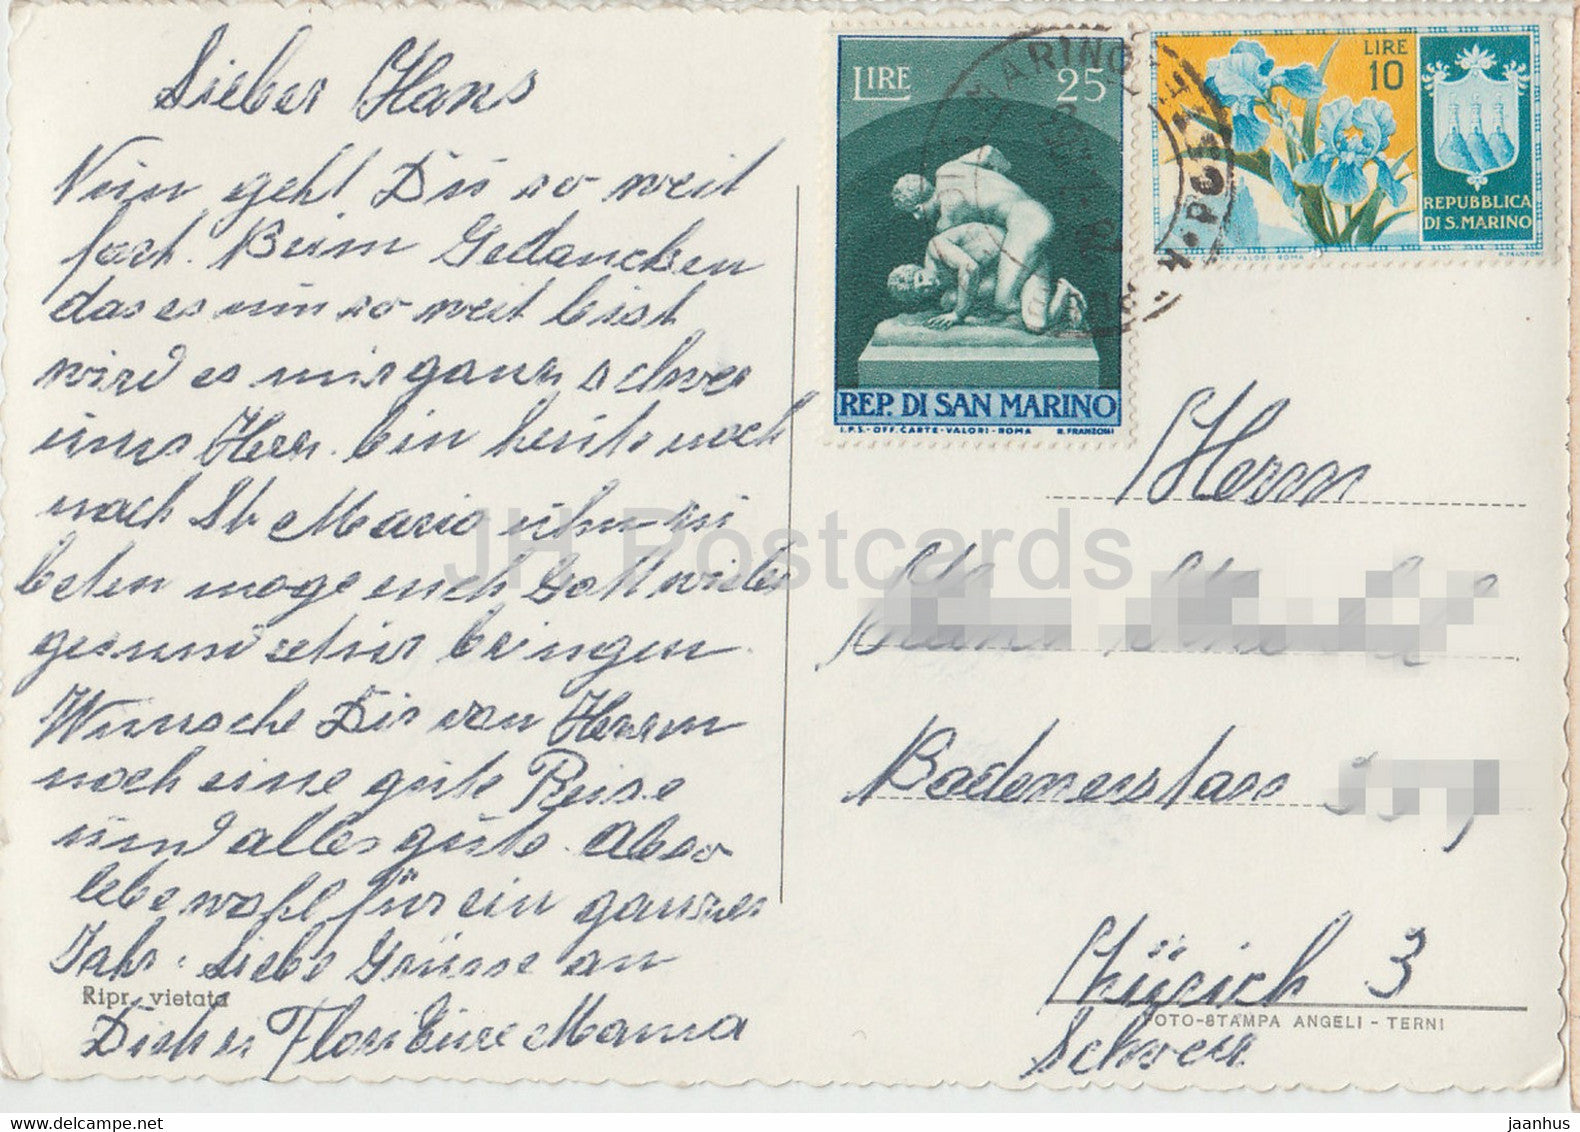 Lieber Hans
Nun geht Du so weit
fort. Beim Gedancken
das es nun so weit bist
wird es mir ganz schwer
ums Herz. bin heute noch
nach St. Mario ihn zu
beten möge euch Gott wieder
gesund retur bringen
Wünsche Dir von Herzen
noch eine gute Reise
und alles gute. Also
lebe wohl für ein ganzes
Jahr. Liebe Grüsse an
Dich u Flori Eure Mama
Ripr. vietata
LIRE 25
REP. DI SAN MARINO
I.P.S.-OFF. CARTE-VALORI-ROMA R. FRANZONI
LIRE
10
REPUBBLICA
DI S. MARINO
R. FRANZONI
Herrn
Badenerstass
Zürich 3
Schweiz
FOTO-STAMPA ANGELI - TERNI
JH Postcards
delcampe.net
jaanhus